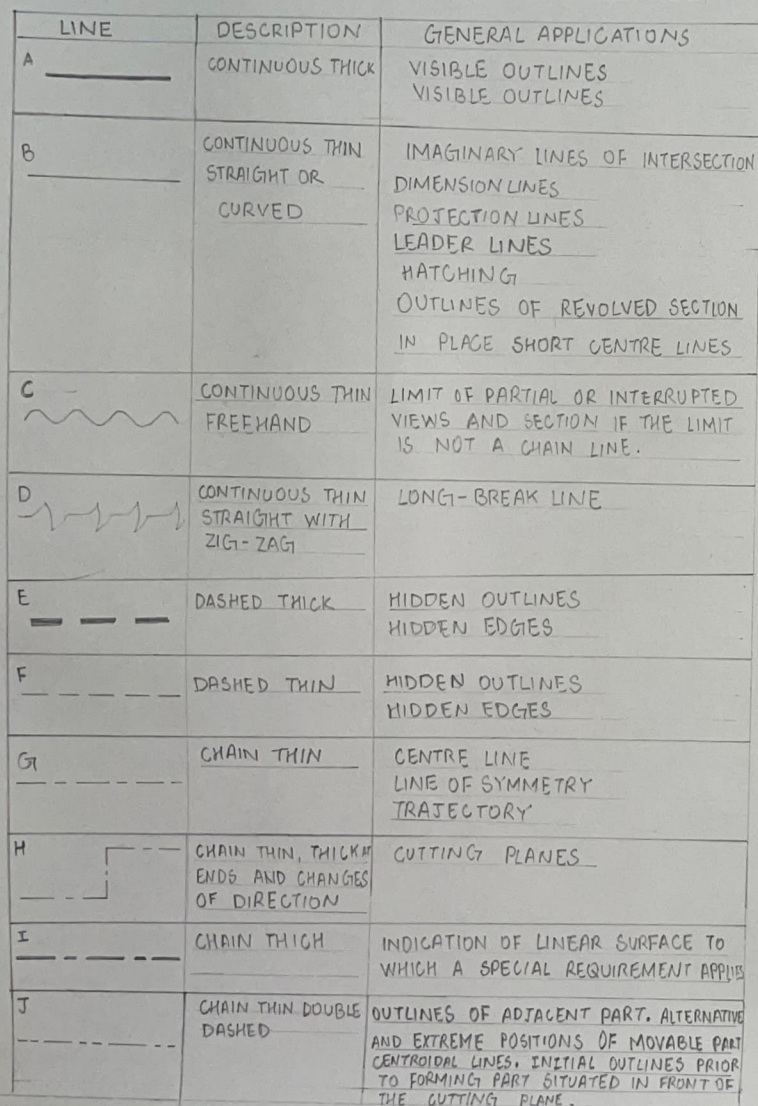 LINE DESCRIPTION GENERAL APPLICATIONS
A CONTINUOUS THICK VISIBLE OUTLINES
VISIBLE OUTLINES
B CONTINUOUS THIN IMAGINARY LINES OF INTERSECTION
STRAIGHT OR DIMENSION LINES
CURVED PROJECTION LINES
LEADER LINES
HATCHING
OUTLINES OF REVOLVED SECTION
IN PLACE SHORT CENTRE LINES
C CONTINUOUS THIN LIMIT OF PARTIAL OR INTERRUPTED
FREEHAND VIEWS AND SECTION IF THE LIMIT
IS NOT A CHAIN LINE.
D CONTINUOUS THIN LONG-BREAK LINE
STRAIGHT WITH
ZIG-ZAG
E DASHED THICK HIDDEN OUTLINES
HIDDEN EDGES
F DASHED THIN HIDDEN OUTLINES
HIDDEN EDGES
G CHAIN THIN CENTRE LINE
LINE OF SYMMETRY
TRAJECTORY
H CHAIN THIN, THICK AT CUTTING PLANES
ENDS AND CHANGES
OF DIRECTION
I CHAIN THICH INDICATION OF LINEAR SURFACE TO
WHICH A SPECIAL REQUIREMENT APPLIES
J CHAIN THIN DOUBLE OUTLINES OF ADJACENT PART. ALTERNATIVE
DASHED AND EXTREME POSITIONS OF MOVABLE PART
CENTROIDAL LINES. INITIAL OUTLINES PRIOR
TO FORMING PART SITUATED IN FRONT OF
THE CUTTING PLANE.